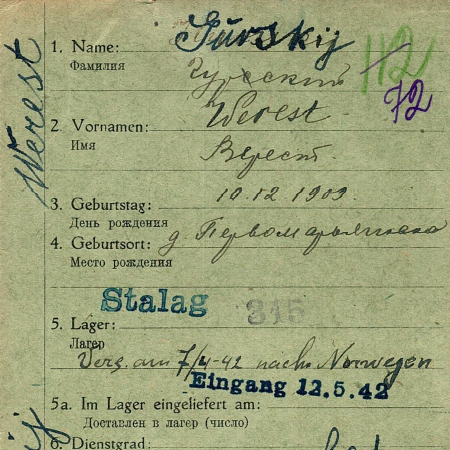 1. Name: Gurskij
Фамилия Гурский
112
72
2. Vornamen: Werest
Имя Верест
Werest
3. Geburtstag: 10.12.1909
День рождения
4. Geburtsort: д.
Место рождения
Stalag 315
5. Lager:
Лагер
Vers. am 7/4-42 nach Norwegen
Eingang 12.5.42
5a. Im Lager eingeliefert am:
Доставлен в лагер (число)
6. Dienstgrad: